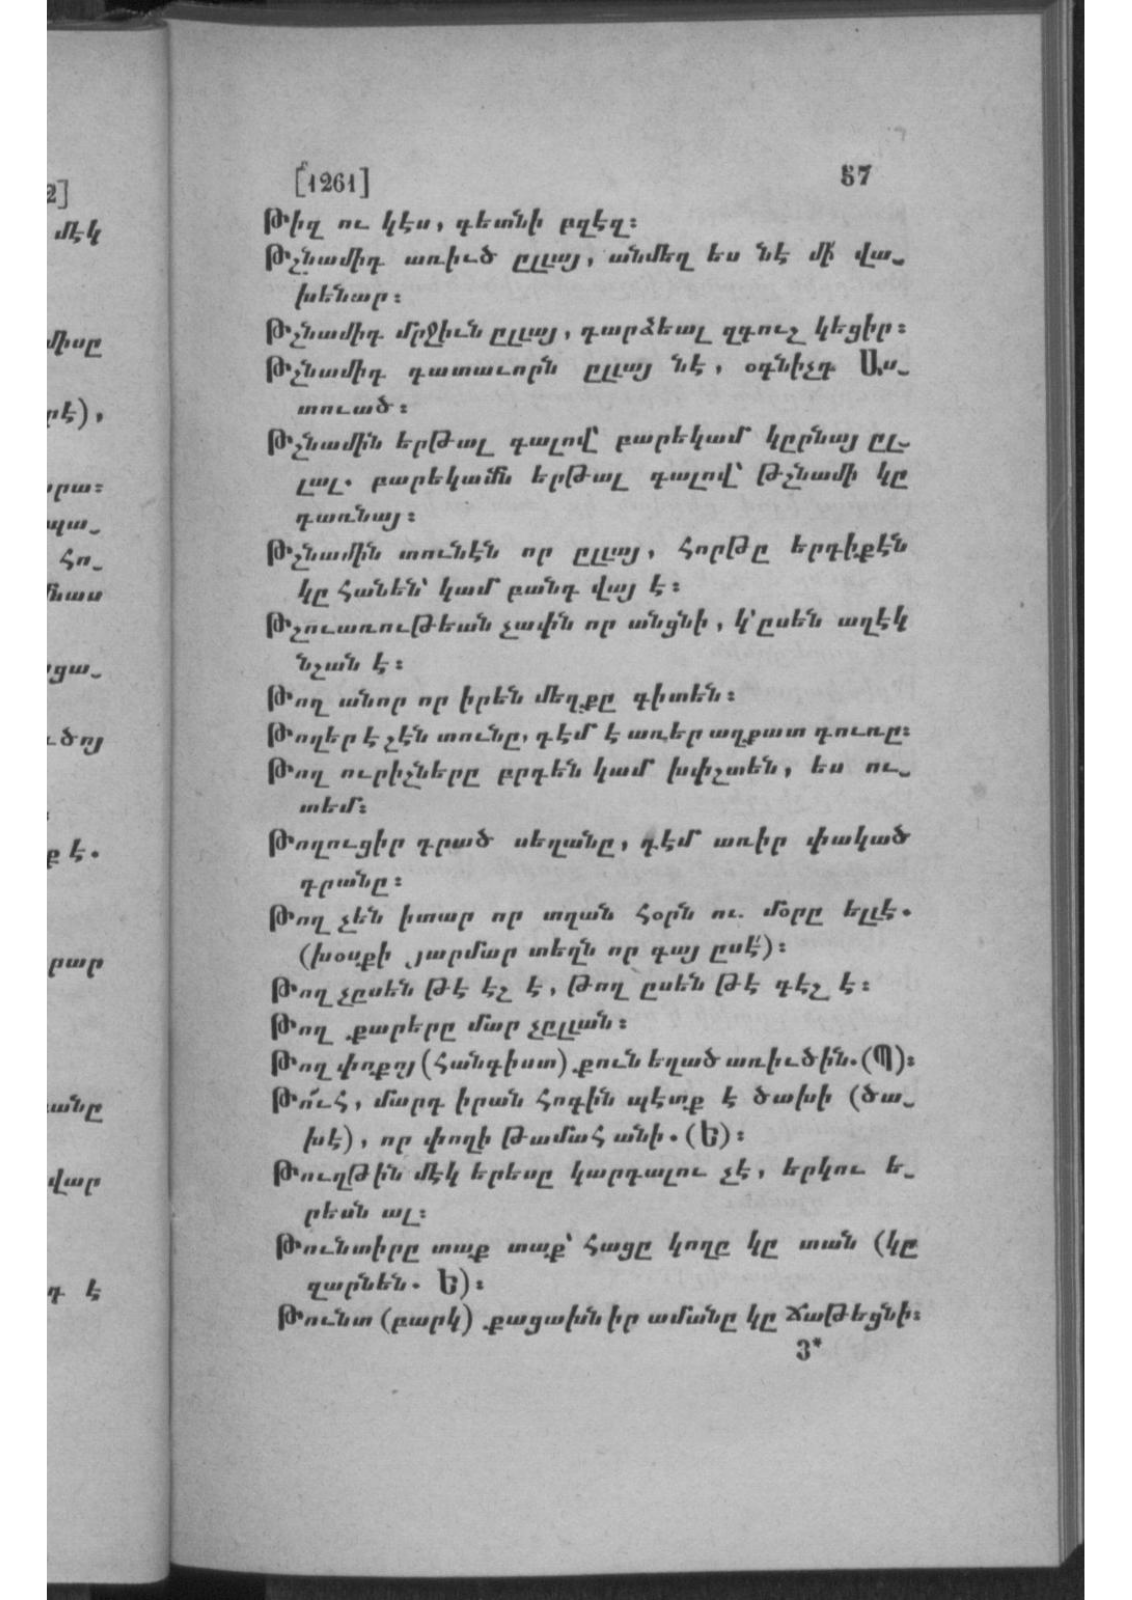 2]
մէկ
միսը
րէ),
րրա։
պա֊
հո֊
մնաս
ցա֊
ւծոյ
ք է.
րար
անը
վար
դ է
[1261] 57
Թիզ ու կէս, գետնի բզէզ։
Թշնամիդ առիւծ ըլլայ, անմեղ ես նէ մի՛ վա֊
խենար։
Թշնամիդ մրջիւն ըլլայ, դարձեալ զգուշ կեցիր։
Թշնամիդ դատաւորն ըլլայ նէ, օգնիչդ Աս֊
տուած։
Թշնամին երթալ գալով՝ բարեկամ կըրնայ ըլ֊
լալ. բարեկամն երթալ գալով՝ թշնամի կը
դառնայ։
Թշնամին տունէն որ ըլլայ, հորթը երդիքէն
կը հանեն՝ կամ բանդ վայ է։
Թշուառութեան չափն որ անցնի, կ՚ըսեն աղէկ
նշան է։
Թող անոր որ իրեն մեղքը գիտեն։
Թողեր է շէն տունը, դէմ է առեր աղքատ դուռը։
Թող ուրիշները բրդեն կամ խփշտեն, ես ու֊
տեմ։
Թողուցիր դրած սեղանը, դէմ առիր փակած
դրանը։
Թող չեն իտար որ տղան հօրն ու մօրը ելլէ.
(խօսքի յարմար տեղն որ գայ ըսէ՛)։
Թող չըսեն թէ էշ է, թող ըսեն թէ գէշ է։
Թող քարերը մար չըլլան։
Թող փոքոյ (հանգիստ) քուն եղած առիւծին.(Պ)։
Թո՛ւհ, մարդ իրան հոգին պէտք է ծախի (ծա֊
խէ), որ փողի թամահ անի.(Ե)։
Թուղթին մէկ երեսը կարդալու չէ, երկու ե֊
րեսն ալ։
Թունտիրը տաք տաք՝ հացը կողը կը տան (կը
զարնեն. Ե)։
Թունտ (բարկ) քացախն իր ամանը կը ճաթեցնի։
3*